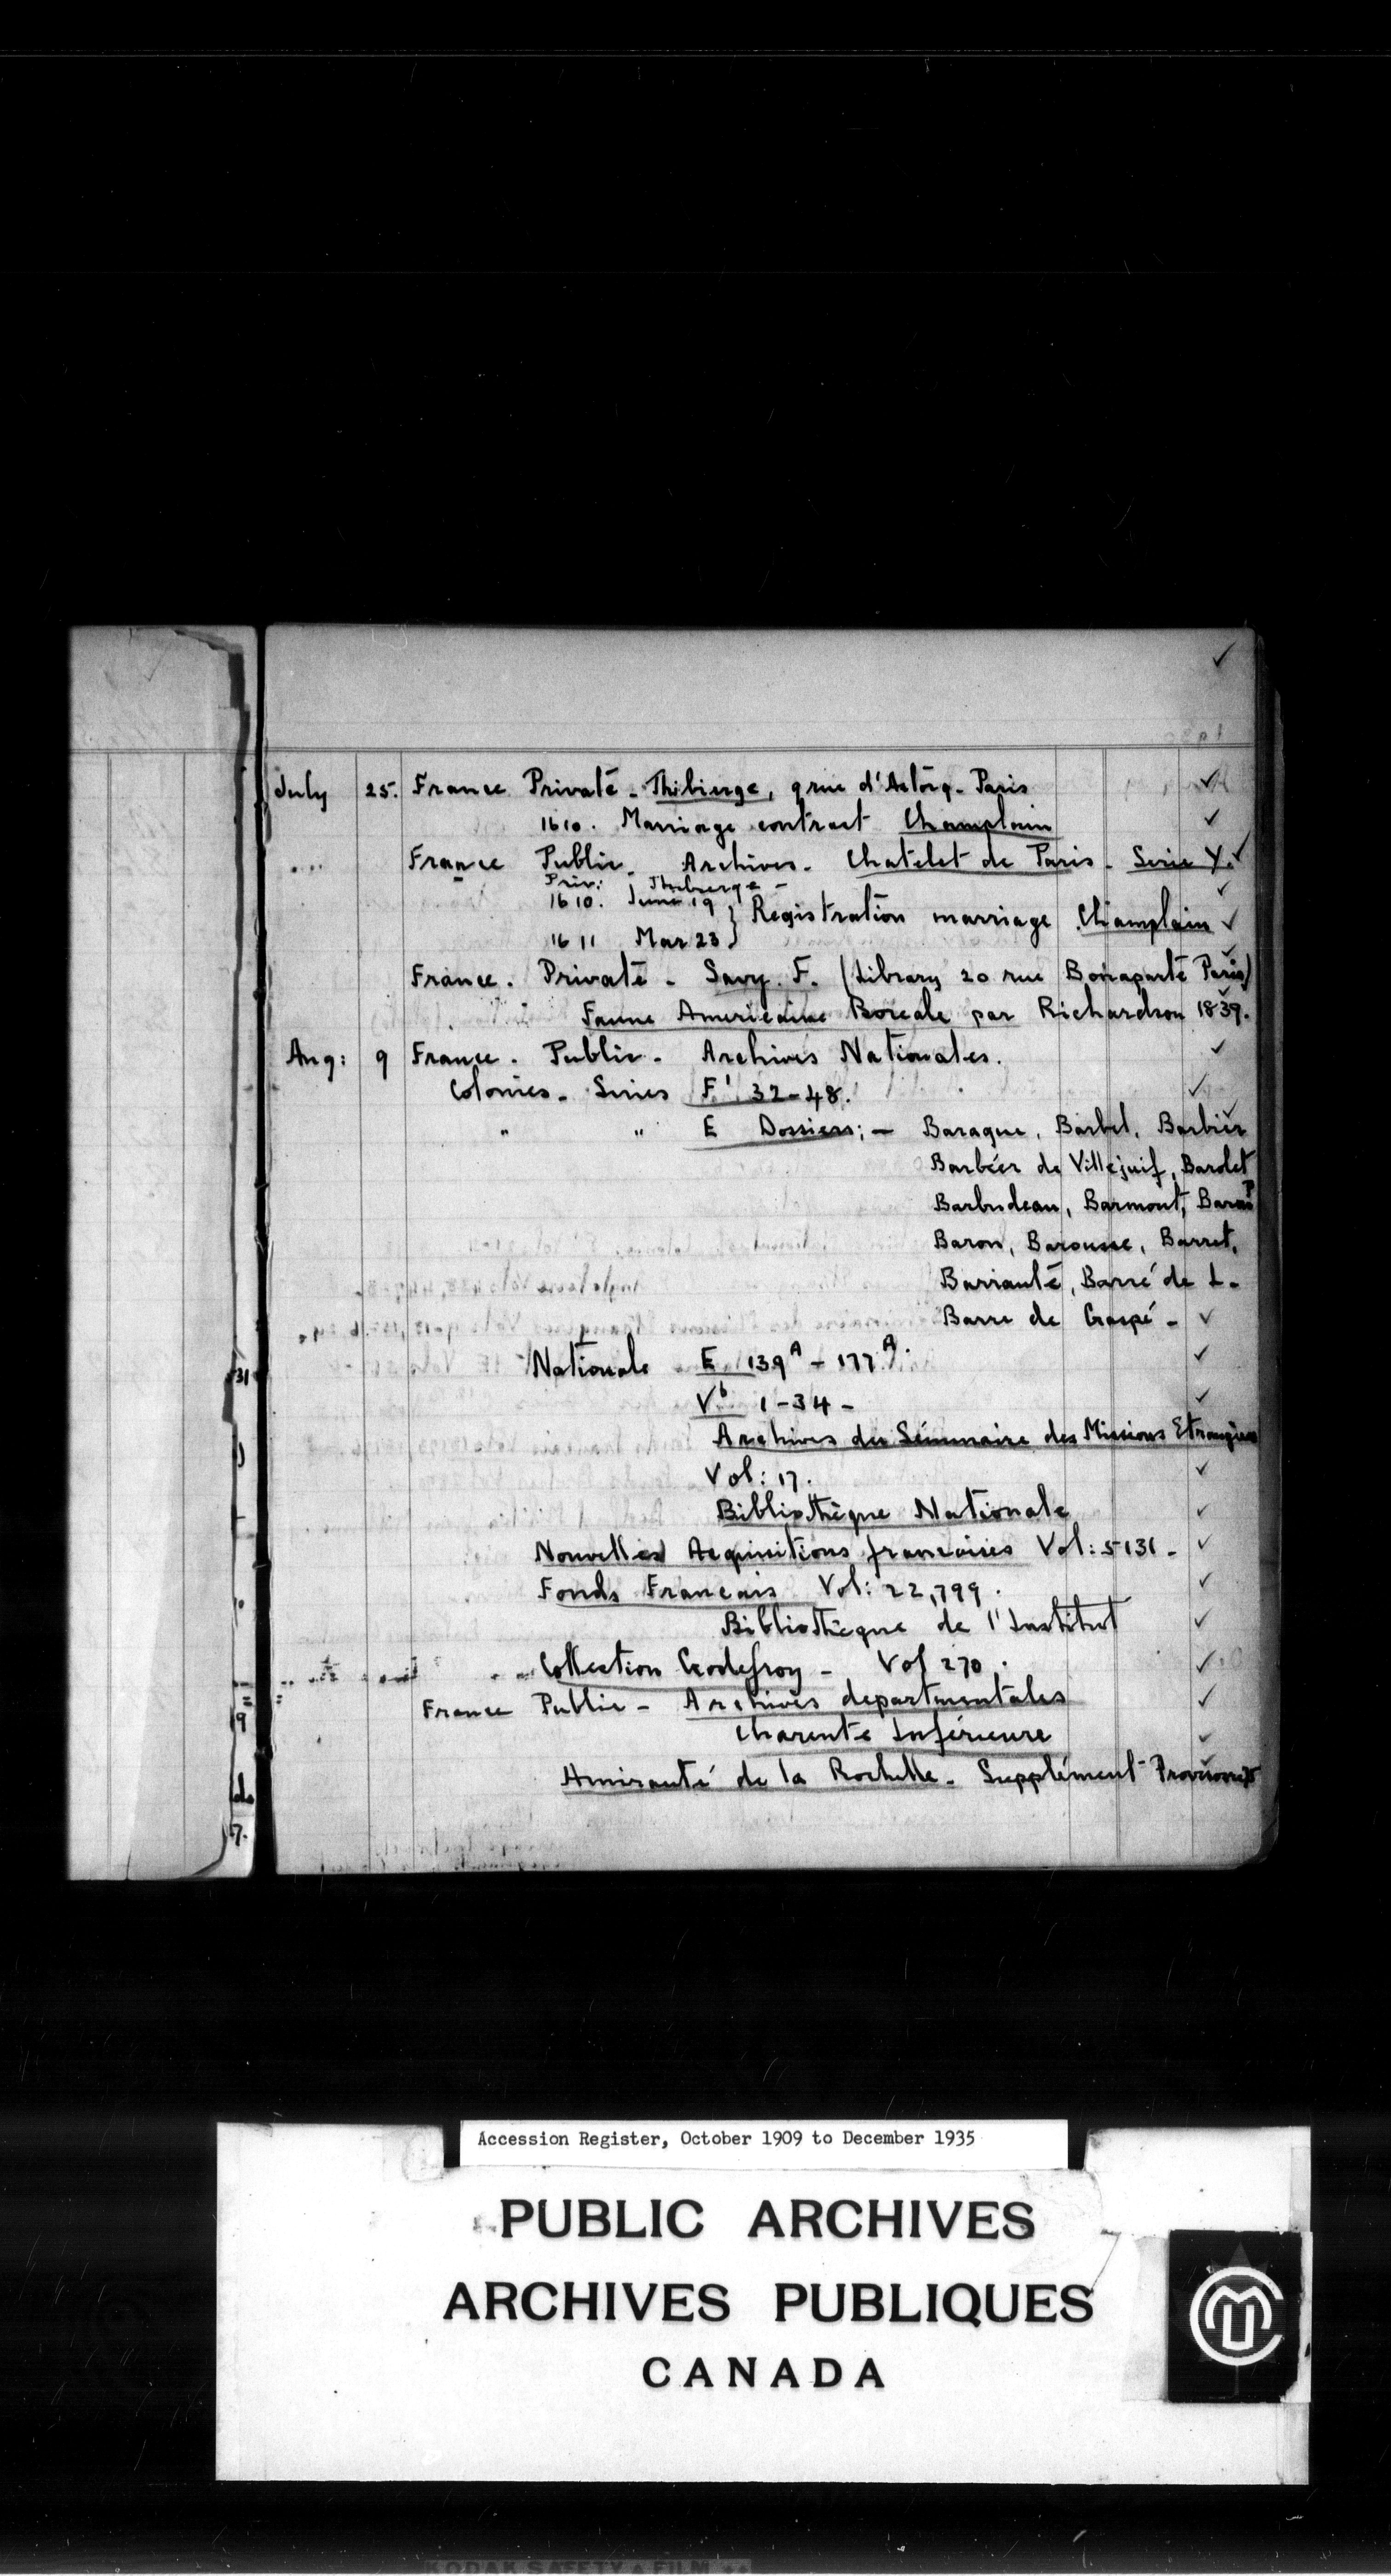 July 25. France Private - Thibierge, 9 rue d'Astorg - Paris
1610. Marriage contract Champlain
France Public - Archives - Chatelet de Paris - Serie Y.
Priv: Thibierge -
1610. June 19
1611 Mar 23 } Registration marriage Champlain
France. Private - Savy. F. (Library 20 rue Bonaparte Paris)
Faune Americaine Boreale par Richardson 1839.
Aug: 9 France. Public - Archives Nationales.
Colonies - Series F1 32-48.
" " E Dossiers; - Baraque, Barbel, Barbier
Barbéer de Villejuif, Barolet
Barbudeau, Barmont,
Baron, Barousse, Barret,
Barriauté, Barré de L-
Barre de Graspé -
Nationale E 139A - 177A.
V6 1-34 -
Archives du Séminaire des Missions Etrangères
Vol: 17.
Bibliothèque Nationale
Nouvelles Acquisitions francaises Vol: 5131 -
Fonds Francais Vol: 22,799.
Bibliothèque de l'Institut
Collection Godefroy - Vol 270.
France Public - Archives departmentales
Charente Inférieure
Amirauté de la Rochelle - Supplément
31
9
7.
Accession Register, October 1909 to December 1935
PUBLIC ARCHIVES
ARCHIVES PUBLIQUES
CANADA
KODAK SAFETY FILM